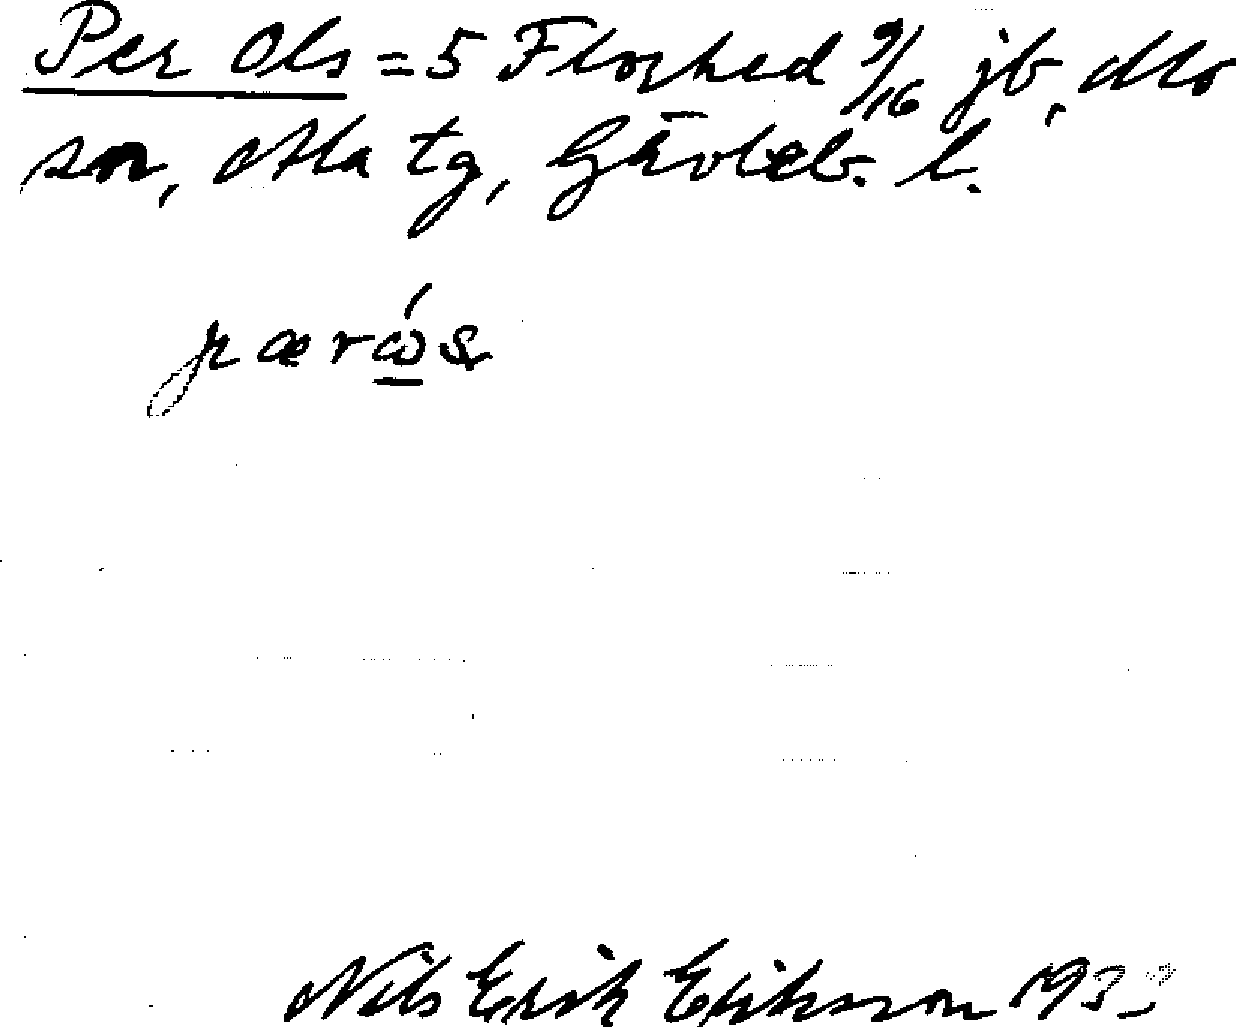 Per Ols = 5 Florhed 9/16 jb, Mo
sn, Ala tg, Gävleb. l.
pæra̱ós
Nils Erik Eriksson 193